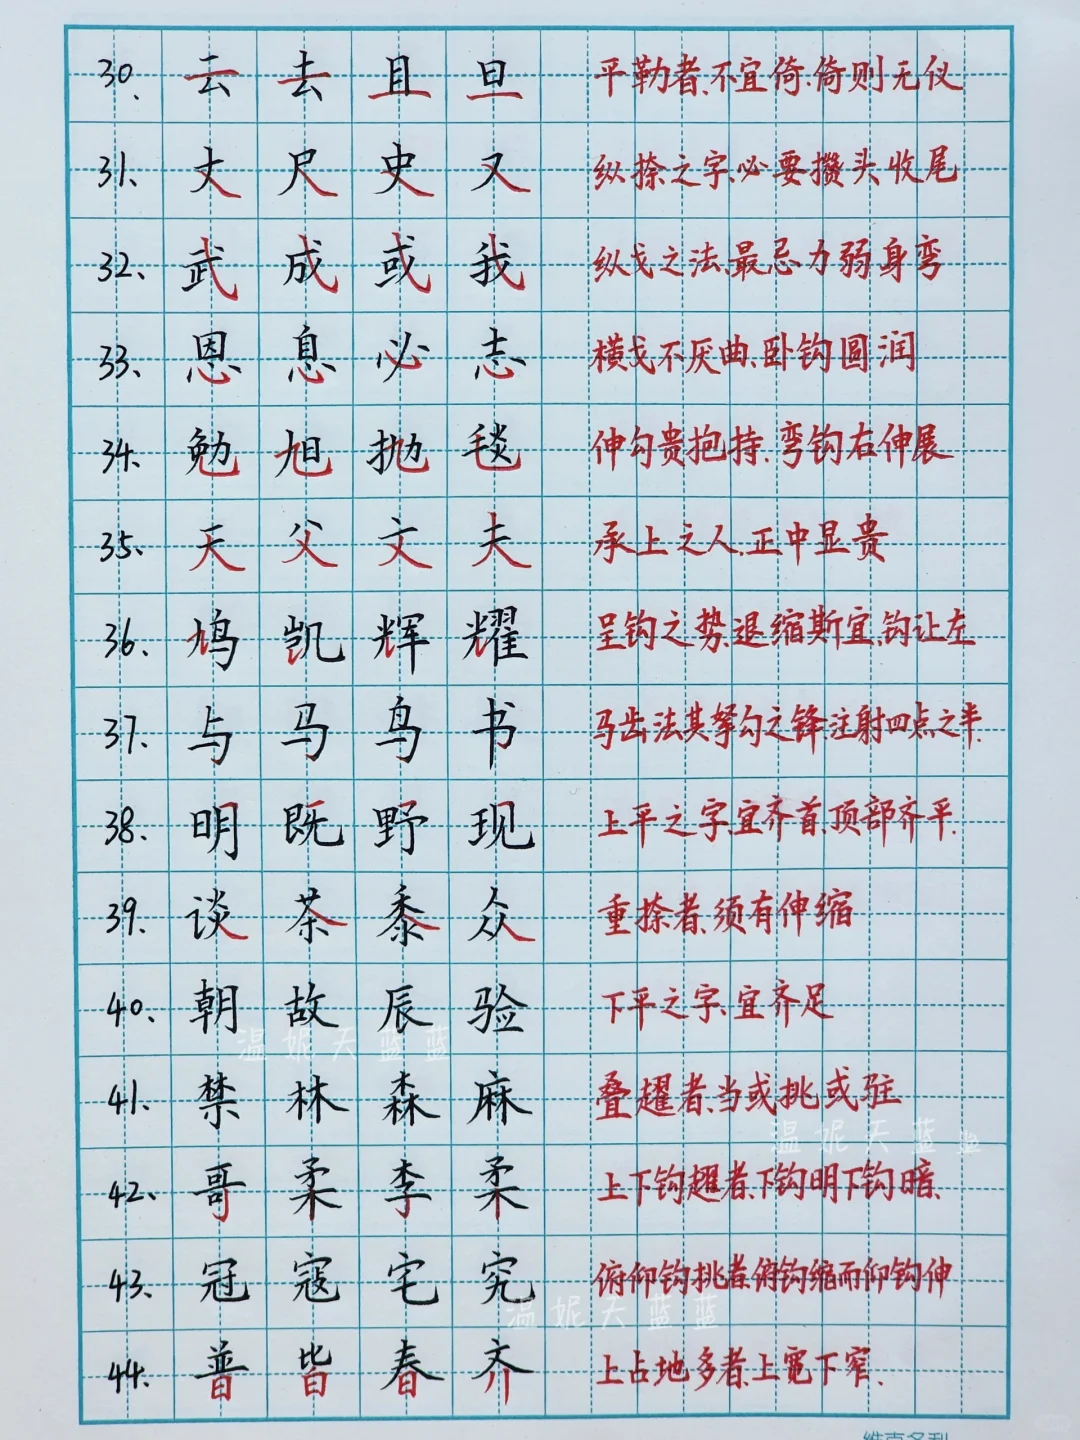 30、 云 去 且 旦 平勒者、不宜倚、倚则无仪
31、 丈 尺 史 又 纵捺之字、必要攒头收尾
32、 武 成 或 我 纵戈之法、最忌力弱身弯
33、 恩 息 必 志 横戈不厌曲、卧钩圆润
34、 勉 旭 抛 毯 伸勾贵抱持、弯钩右伸展
35、 天 父 文 夫 承上之人、正中显贵
36、 鸠 凯 辉 耀 呈钩之势、退缩斯宜、钩让左
37、 与 马 鸟 书 马齿法其弩勾之锋注射四点之半.
38、 明 既 野 现 上平之字、宜齐首、顶部齐平.
39、 谈 茶 黍 众 重捺者、须有伸缩
40、 朝 故 辰 验 下平之字、宜齐足
41、 禁 林 森 麻 叠趯者、当或挑或驻
42、 哥 柔 李 柔 上下钩趯者、下钩明下钩暗、
43、 冠 寇 宅 究 俯仰钩挑者、俯钩缩而仰钩伸
44、 普 皆 春 齐 上占地多者、上宽下窄.
温妮天蓝蓝
温妮天蓝蓝
温妮天蓝蓝